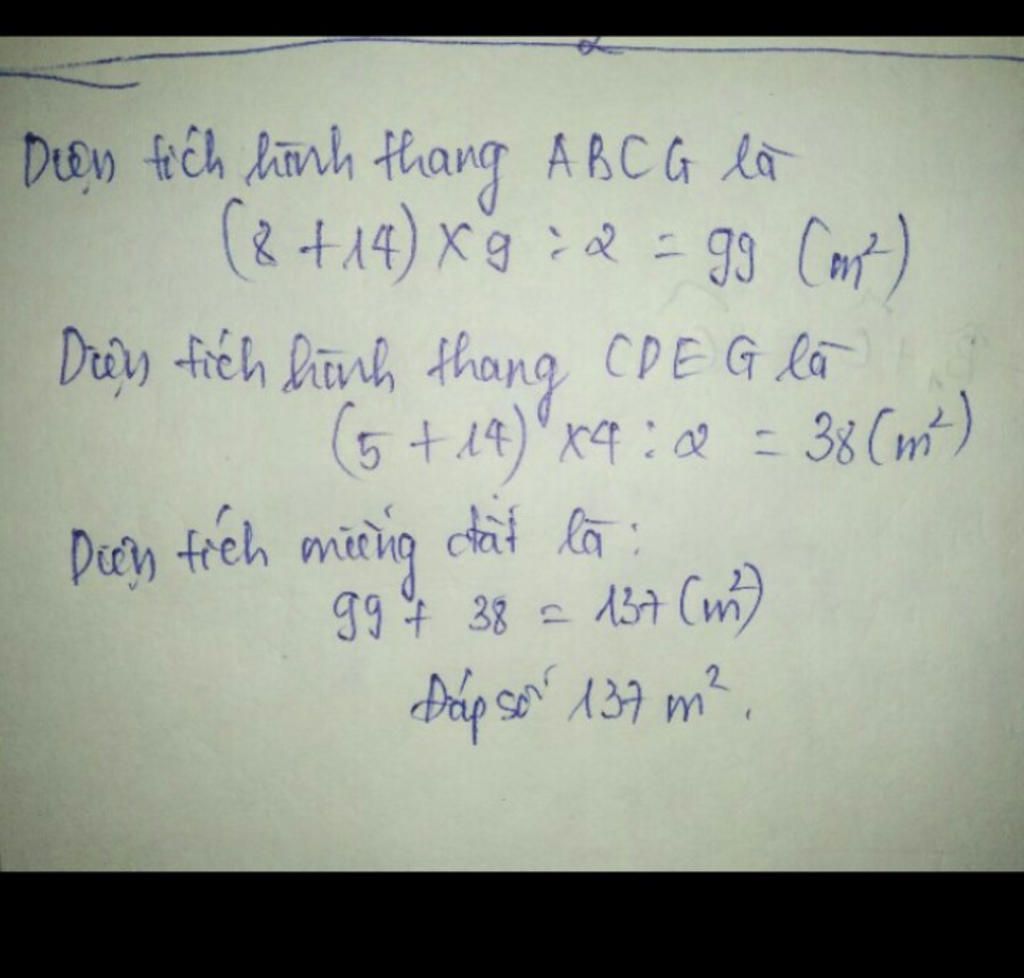 Diện tích hình thang ABCG là
(8 + 14) x 9 : 2 = 99 (m²)
Diện tích hình thang CDEG là
(5 + 14) x 4 : 2 = 38 (m²)
Diện tích miếng đất là :
99 + 38 = 137 (m²)
Đáp số 137 m².